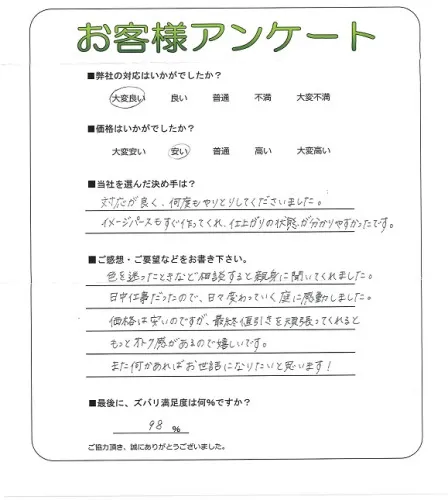 お客様アンケート
■弊社の対応はいかがでしたか？
大変良い 良い 普通 不満 大変不満
■価格はいかがでしたか？
大変安い 安い 普通 高い 大変高い
■当社を選んだ決め手は？
対応が良く、何度もやりとりしてくださいました。
イメージパースもすぐ作ってくれ、仕上がりの状態が分かりやすかったです。
■ご感想・ご要望などをお書き下さい。
色を迷ったときなど相談すると親身に聞いてくれました。
日中仕事だったので、日々変わっていく庭に感動しました。
価格は安いのですが、最終値引きを頑張ってくれると
もっとオトク感があるので嬉しいです。
また何かあればお世話になりたいと思います！
■最後に、ズバリ満足度は何％ですか？
98 ％
ご協力頂き、誠にありがとうございました。